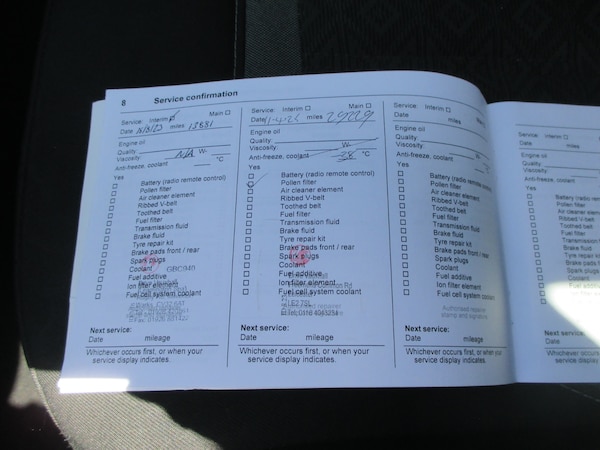 8 Service confirmation
Service: Interim Main
Date 18/8/23 miles 18881
Engine oil
Quality
Viscosity N/A W-
Anti-freeze, coolant °C
Yes
Battery (radio remote control)
Pollen filter
Air cleaner element
Ribbed V-belt
Toothed belt
Fuel filter
Transmission fluid
Brake fluid
Tyre repair kit
Brake pads front / rear
Spark plugs
Coolant GBC940
Fuel additive
Ion filter element
Fuel cell system coolant
Next service:
Date mileage
Whichever occurs first, or when your
service display indicates.
Service: Interim Main
Date miles 29229
Engine oil
Quality
Viscosity W-
Anti-freeze, coolant 38 °C
Yes
Battery (radio remote control)
Pollen filter
Air cleaner element
Ribbed V-belt
Toothed belt
Fuel filter
Transmission fluid
Brake fluid
Tyre repair kit
Brake pads front / rear
Spark plugs
Coolant
Fuel additive
Ion filter element
Fuel cell system coolant
Next service:
Date mileage
Whichever occurs first, or when your
service display indicates.
Service: Interim Main
Date miles
Engine oil
Quality
Viscosity W-
Anti-freeze, coolant °C
Yes
Battery (radio remote control)
Pollen filter
Air cleaner element
Ribbed V-belt
Toothed belt
Fuel filter
Transmission fluid
Brake fluid
Tyre repair kit
Brake pads front / rear
Spark plugs
Coolant
Fuel additive
Ion filter element
Fuel cell system coolant
Authorised repairer
stamp and signature
Next service:
Date mileage
Whichever occurs first, or when your
service display indicates.
Service: Interim
Date miles
Engine oil
Quality
Viscosity
Anti-freeze, coolant
Yes
Battery (radio rem
Pollen filter
Air cleaner elem
Ribbed V-belt
Toothed belt
Fuel filter
Transmission fluid
Brake fluid
Tyre repair kit
Brake pads front
Spark plugs
Coolant
Fuel additive
Ion filter element
Fuel cell system
Next service:
Date mileage
Whichever occurs first, or
service display indicates